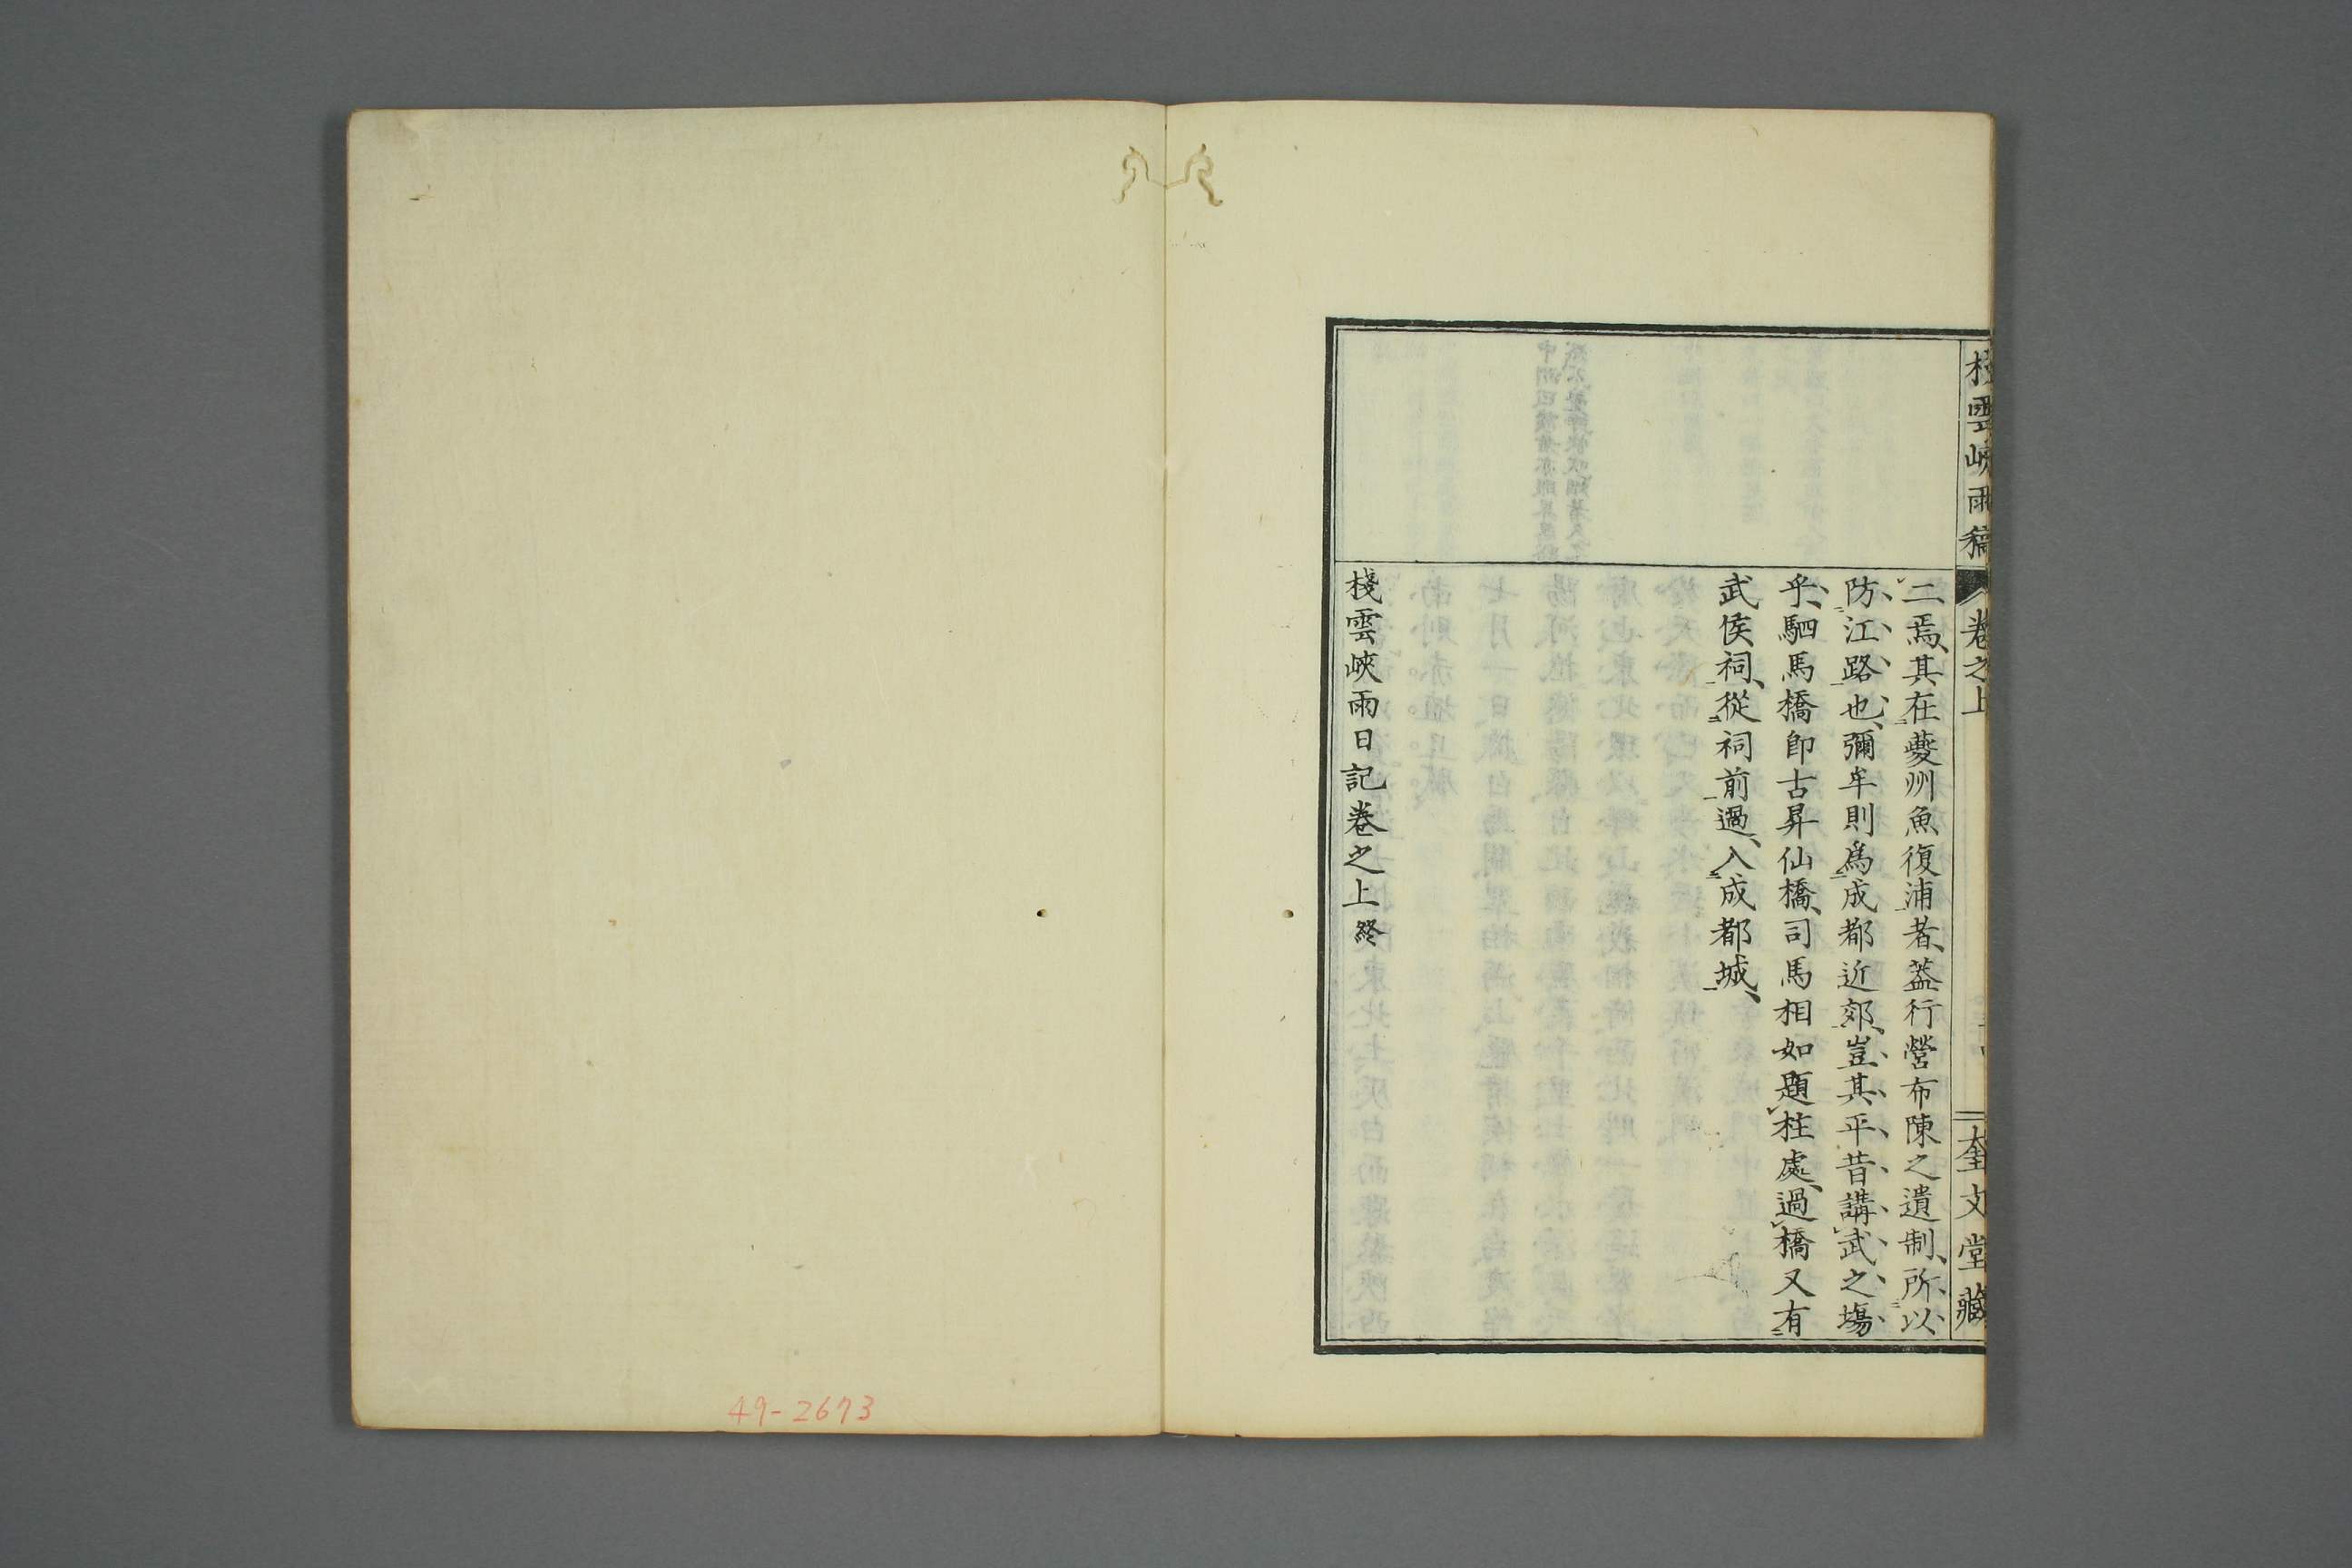 棧雲峽雨稿
卷之上
奎文堂藏
二焉、其在夔州魚復浦者、葢行營布陳之遺制、所以
防江路也、彌牟則爲成都近郊、豈其平昔講武之塲
乎、駟馬橋卽古昇仙橋、司馬相如題柱處、過橋又有
武侯祠、從祠前過、入成都城、
棧雲峽雨日記卷之上終
49-2673